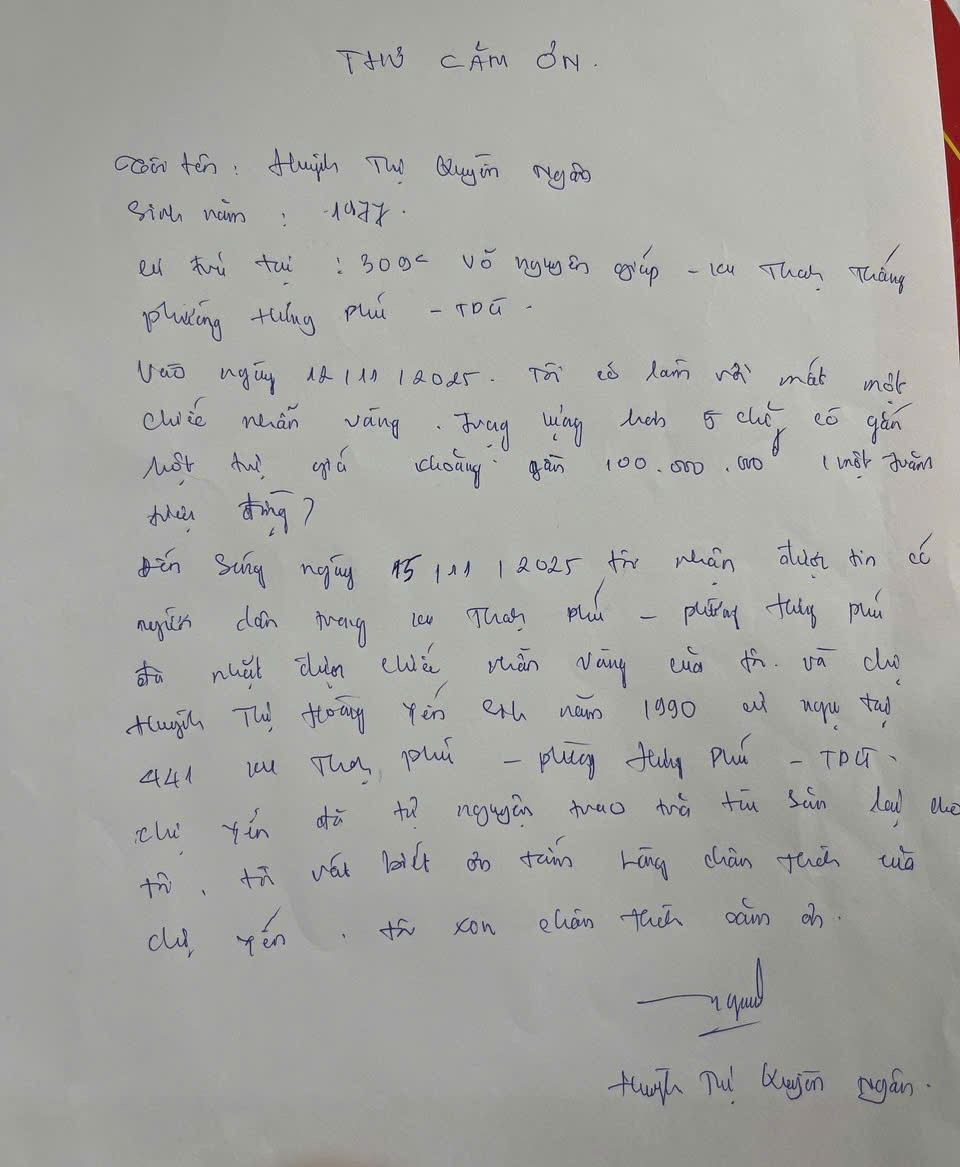 THƯ CẢM ƠN.
Tôi tên : Huỳnh Thị Quyền Ngân
Sinh năm : 1977.
cư trú tại : 309c Võ nguyên giáp - kv Thạnh Thắng
phường Hưng phú - TPCT.
Vào ngày 12/11/2025. Tôi có làm rơi mất một
chiếc nhẫn vàng. Trọng lượng hơn 5 chỉ, có gắn
hột trị giá khoảng gần 100.000.000đ (một trăm
triệu đồng)
Đến Sáng ngày 15/11/2025 tôi nhận được tin có
người dân trong kv Thạnh phú - phường Hưng phú
đã nhặt được chiếc nhẫn vàng của tôi. và chị
Huỳnh Thị Hoàng Yến sinh năm 1990 cư ngụ tại
441 kv Thạnh phú - phường Hưng Phú - TPCT.
chị Yến đã tự nguyện trao trả tài sản lại cho
tôi. tôi rất biết ơn tấm lòng chân thành của
chị Yến. tôi xin chân thành cảm ơn.
Huỳnh Thị Quyền Ngân.